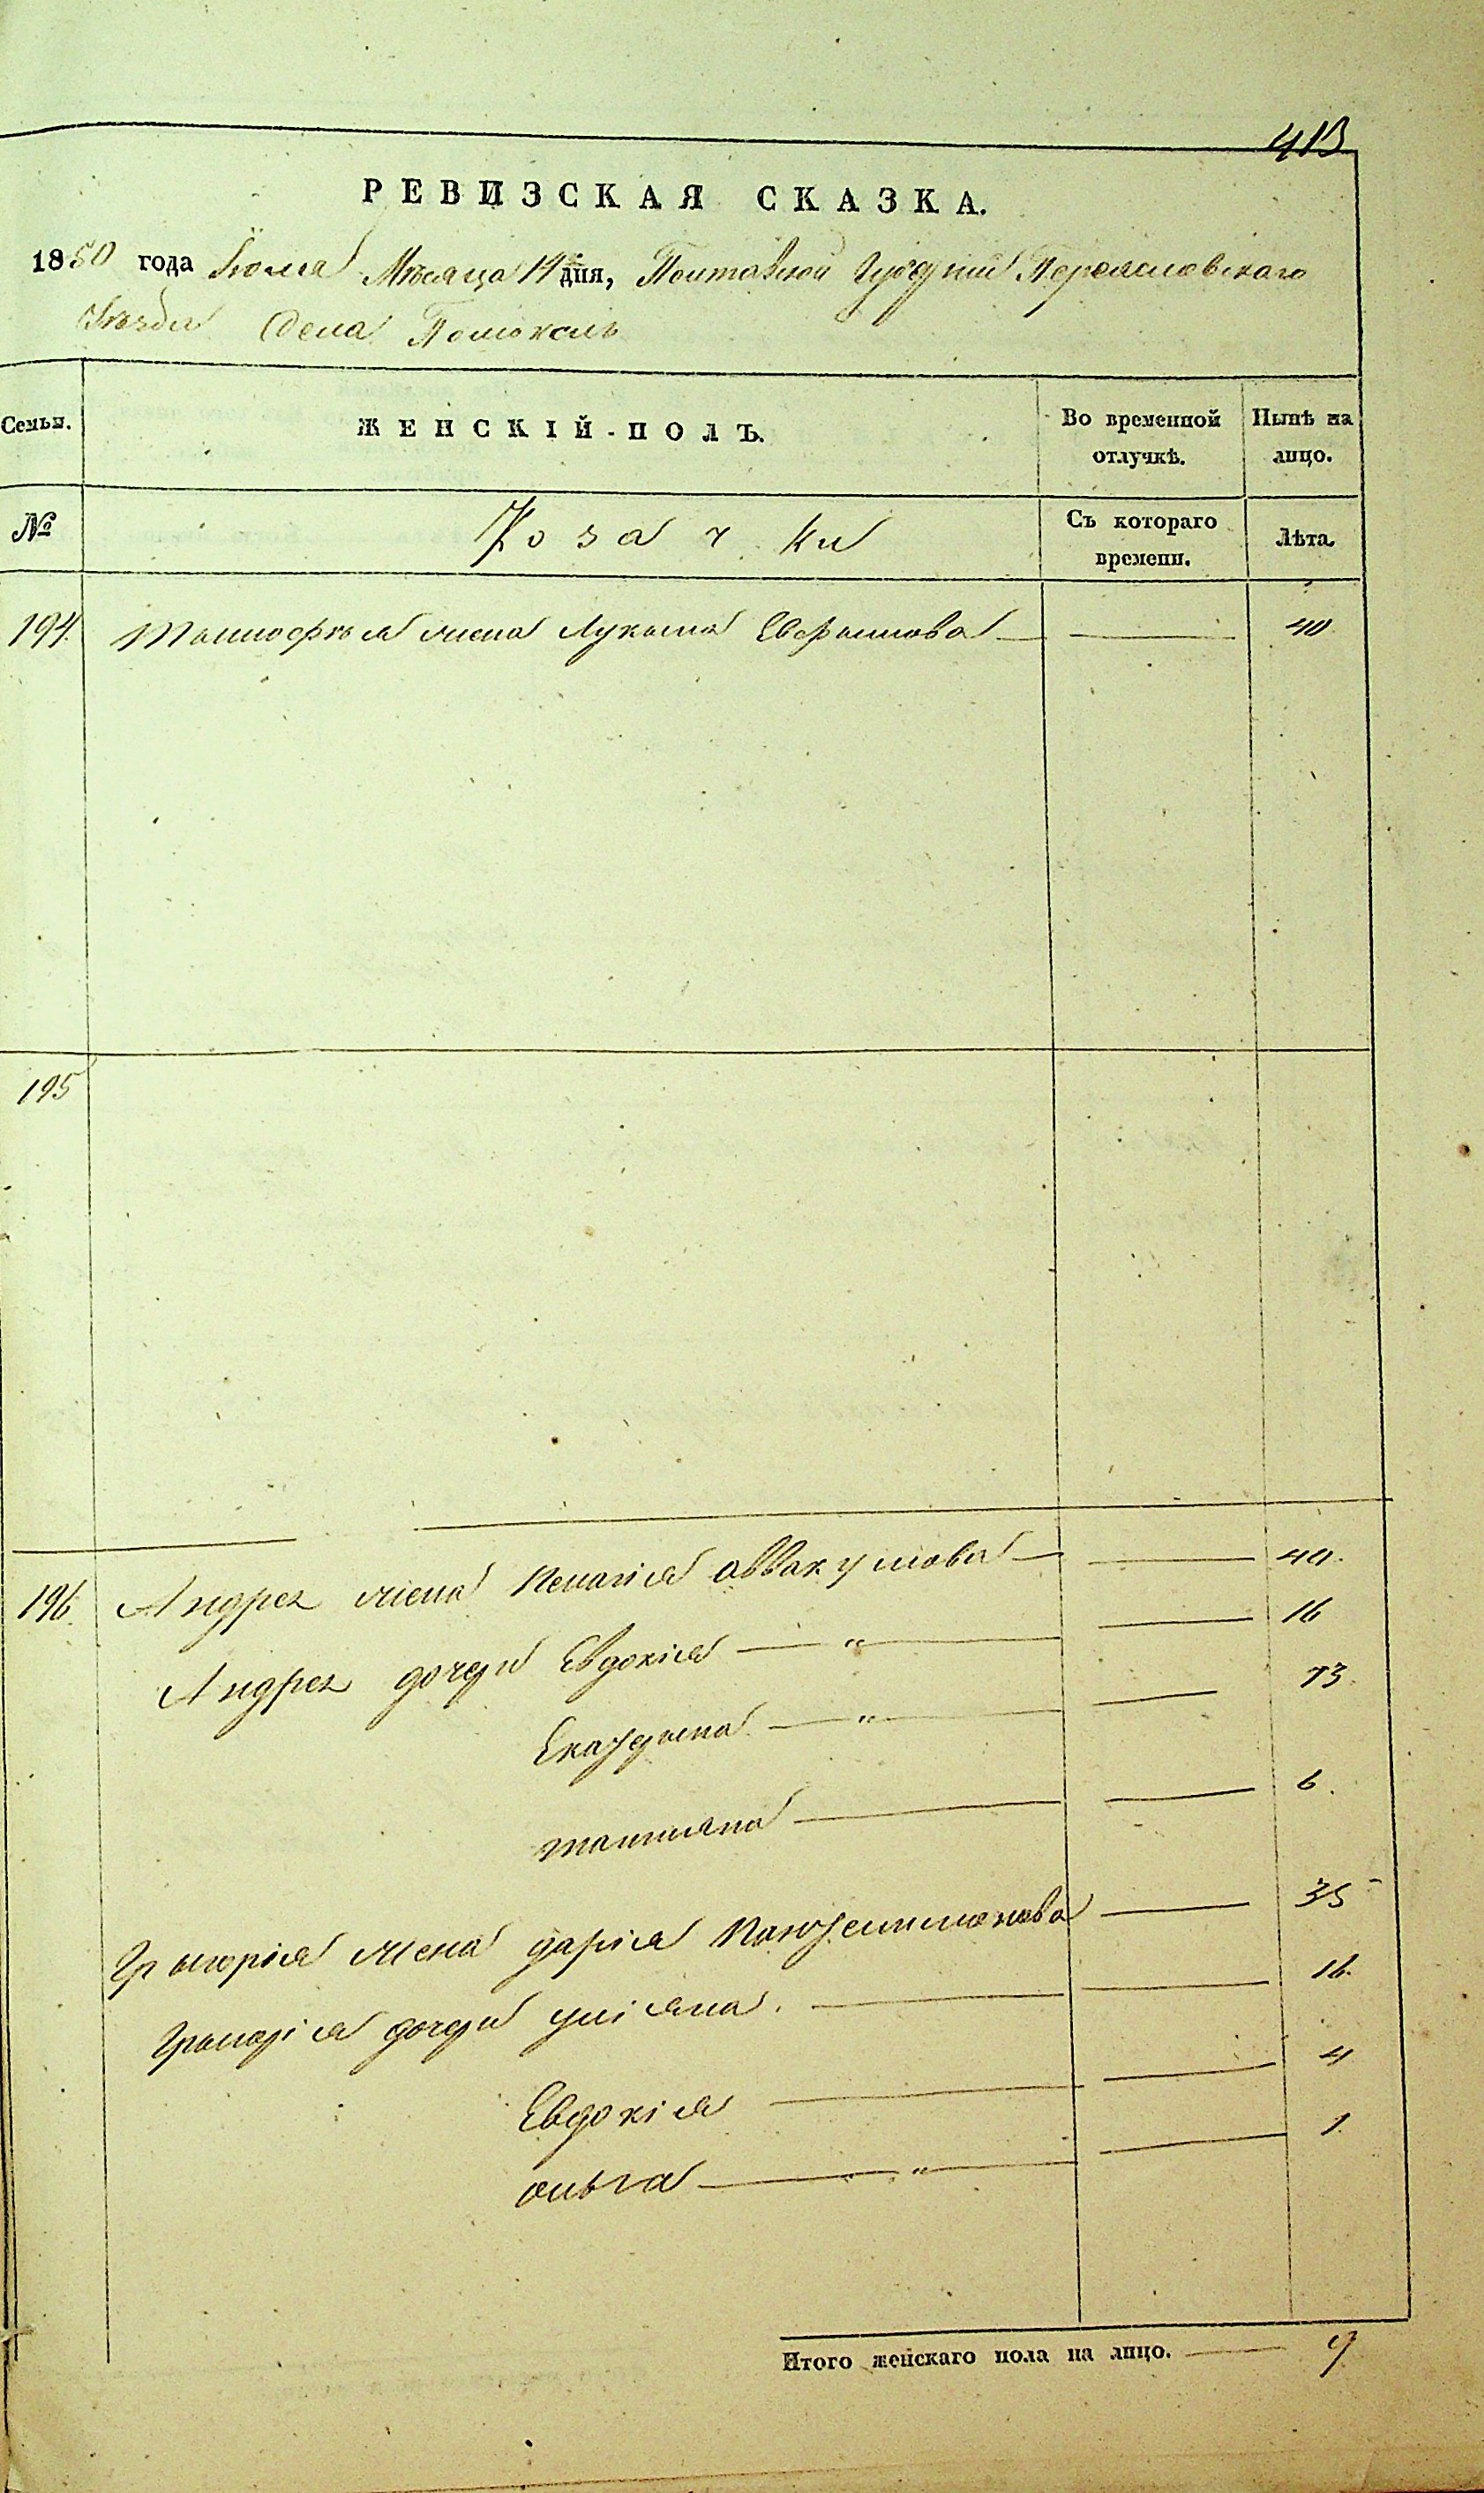 413
РЕВИЗСКАЯ СКАЗКА.
1850 года Іюля Мѣсяца 14 дня, Полтавской Губерніи Переяславскаго
Уѣзда Села Помоклъ
Семьи. ЖЕНСКІЙ ПОЛЪ. Во временной отлучкѣ. Нынѣ на лицо.
№ Козачки Съ котораго времени. Лѣта.
194. Тимофея жена Лукия Евфимова — — 40
195
196. Андрея жена Пелагія Аввакумова — — 40.
Андрея дочери Евдокія — " — — 16
Екатерина — " — — 13.
татияна — — 6.
Григорія жена дарія Пантелимонова — 35
Григорія дочери улияна. — — 16.
Евдокія — — 4
ольга — " — — 1.
Итого женскаго пола на лицо. — 9